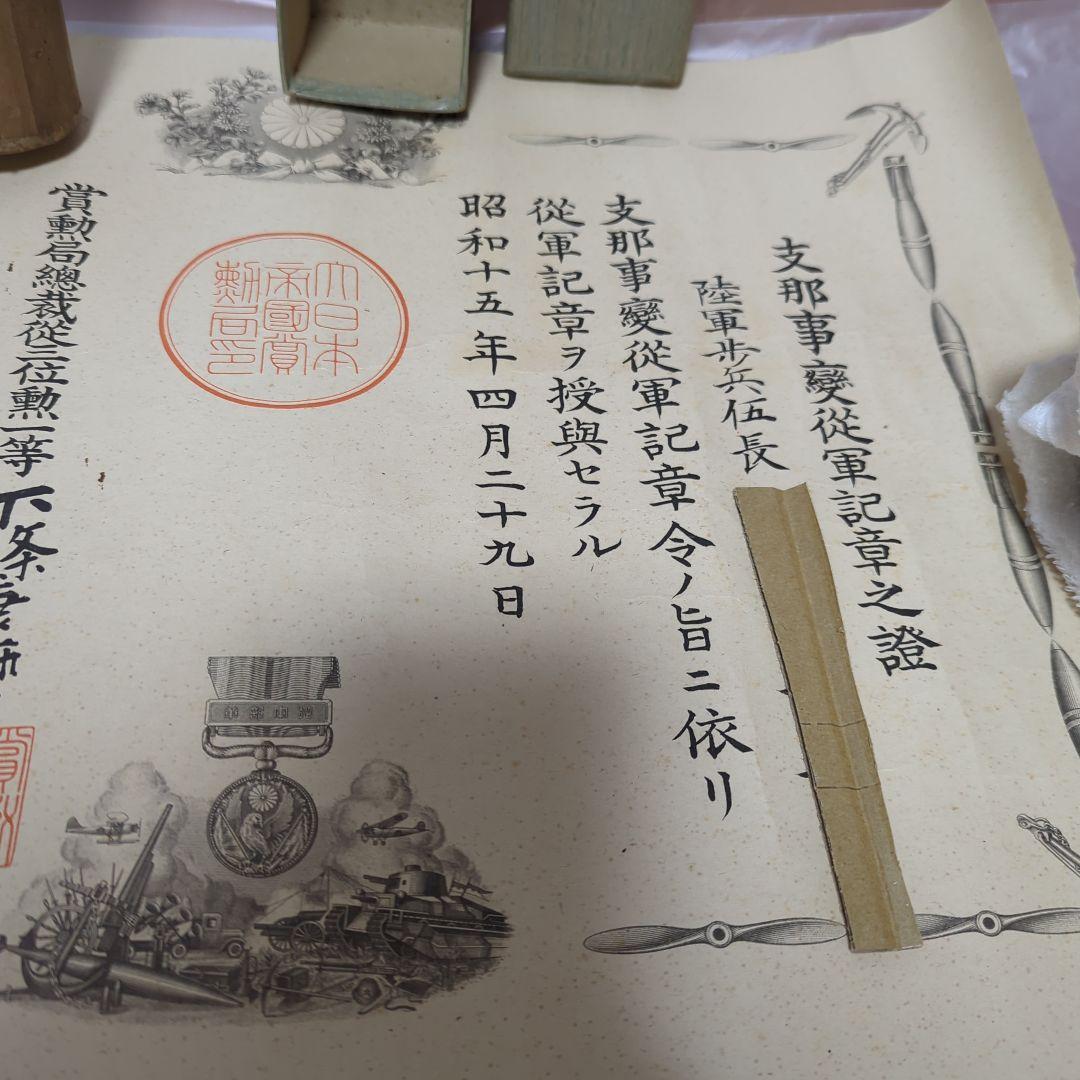 支那事變從軍記章之證
陸軍歩兵伍長
支那事變從軍記章令ノ旨ニ依リ
從軍記章ヲ授與セラル
昭和十五年四月二十九日
大日本
帝國賞
勳局印
賞勳局總裁從三位勲一等
下条康麿